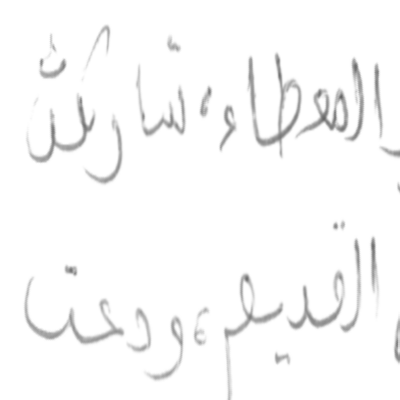 المعطاء، شاركت
القديم، ودعت